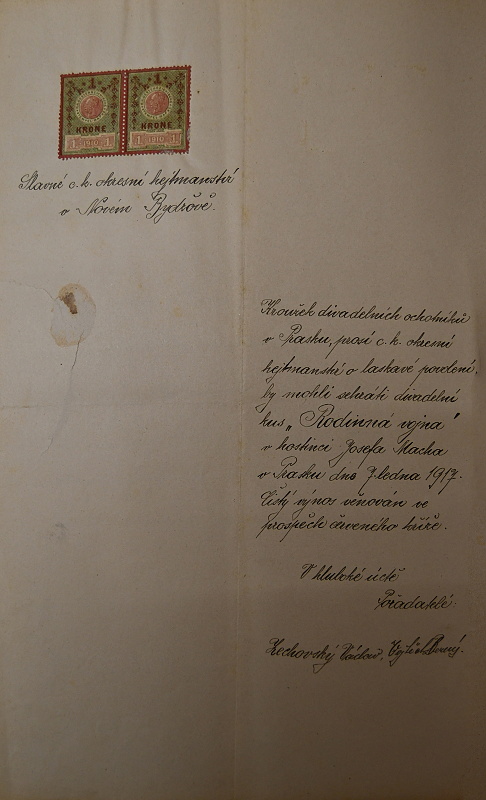 1 1
KRONE KRONE
1 1910 1 1 1910 1
Slavné c. k. okresní hejtmanství
v Novém Bydžově.
Kroužek divadelních ochotníků
v Prasku, prosí c. k. okresní
hejtmanství o laskavé povolení,
by mohli sehráti divadelní
kus „Rodinná vojna"
v hostinci Josefa Macha
v Prasku dne 7. ledna 1917.
Čistý výnos věnován ve
prospěch červeného kříže.
V hluboké úctě
Pořadatelé:
Zechovský Václav,